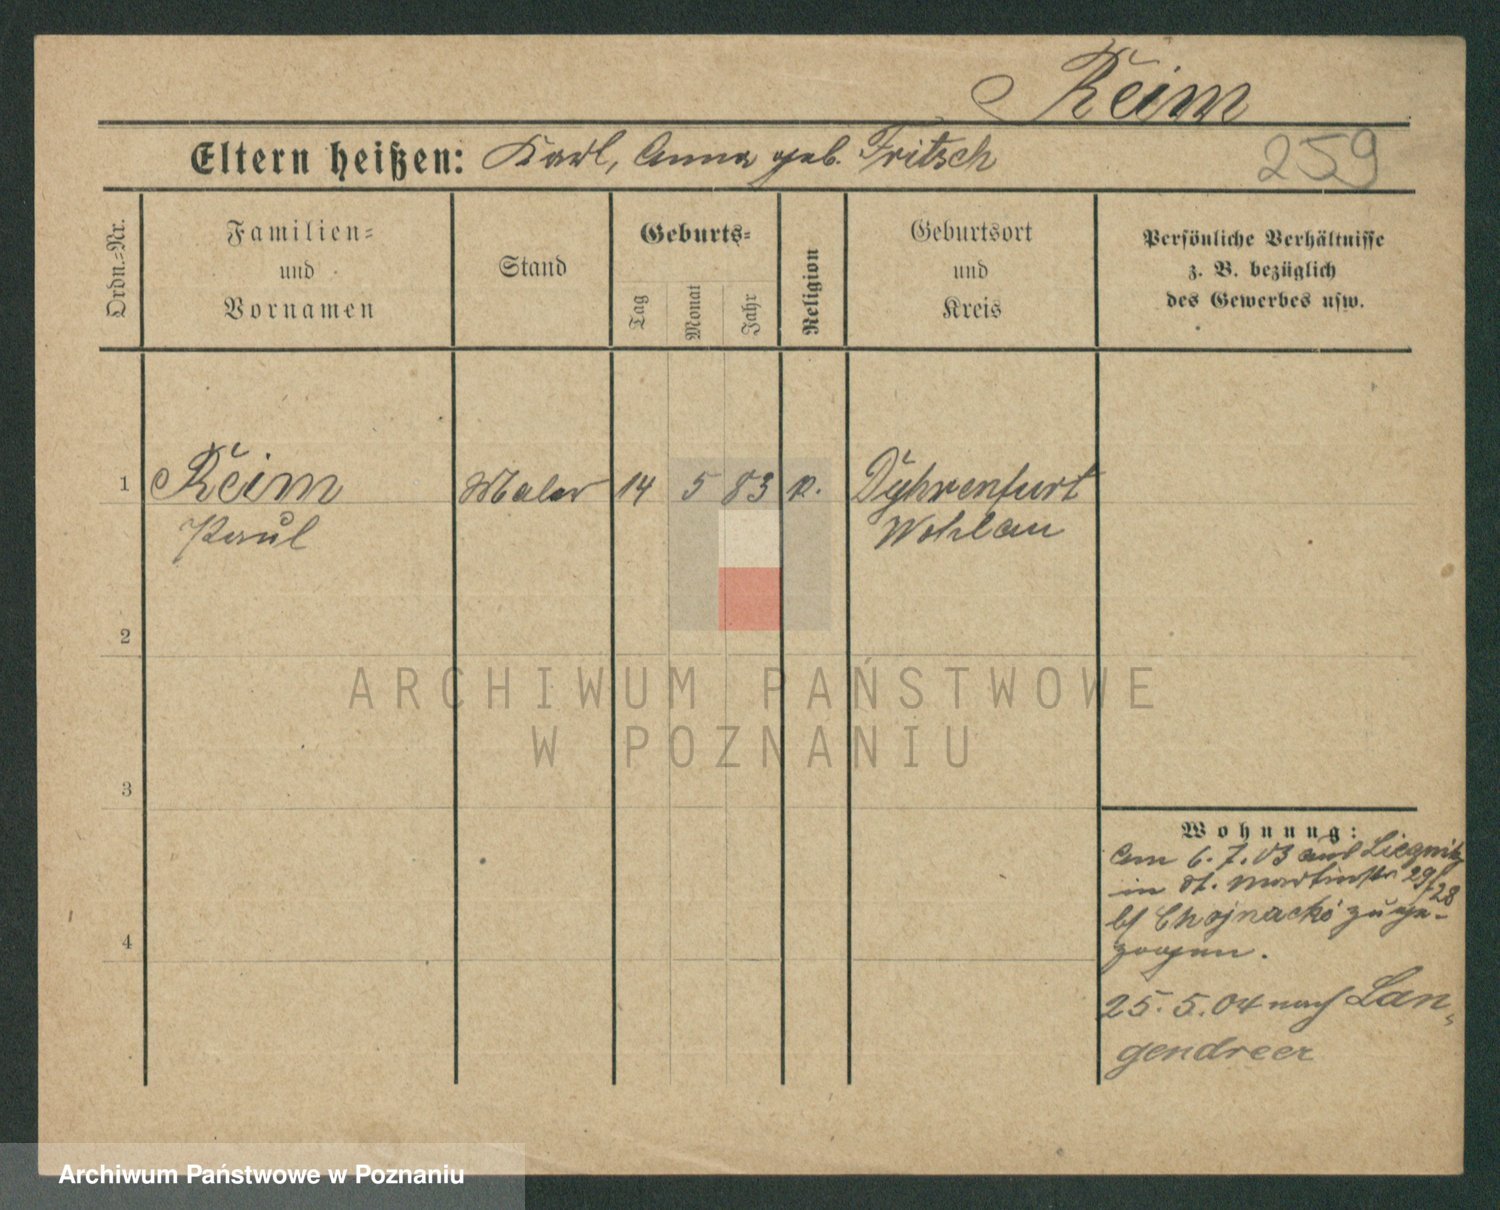 Reim
Eltern heißen: Karl, Anna geb. Fritsch
259
Ordn.-Nr.
Familien-
und
Vornamen
Stand
Geburts-
Tag
Monat
Jahr
Religion
Geburtsort
und
Kreis
Persönliche Verhältnisse
z. B. bezüglich
des Gewerbes usw.
1
Reim
Paul
Maler
14
5
83
k.
Dyhrenfurt
Wohlau
2
ARCHIWUM PAŃSTWOWE
W POZNANIU
3
Wohnung:
am 6.7.03 aus Liegnitz
in St. Martinstr. 29/28
bf Chojnacki zuge-
zogen.
4
25.5.04 nach Lan-
gendreer
Archiwum Państwowe w Poznaniu